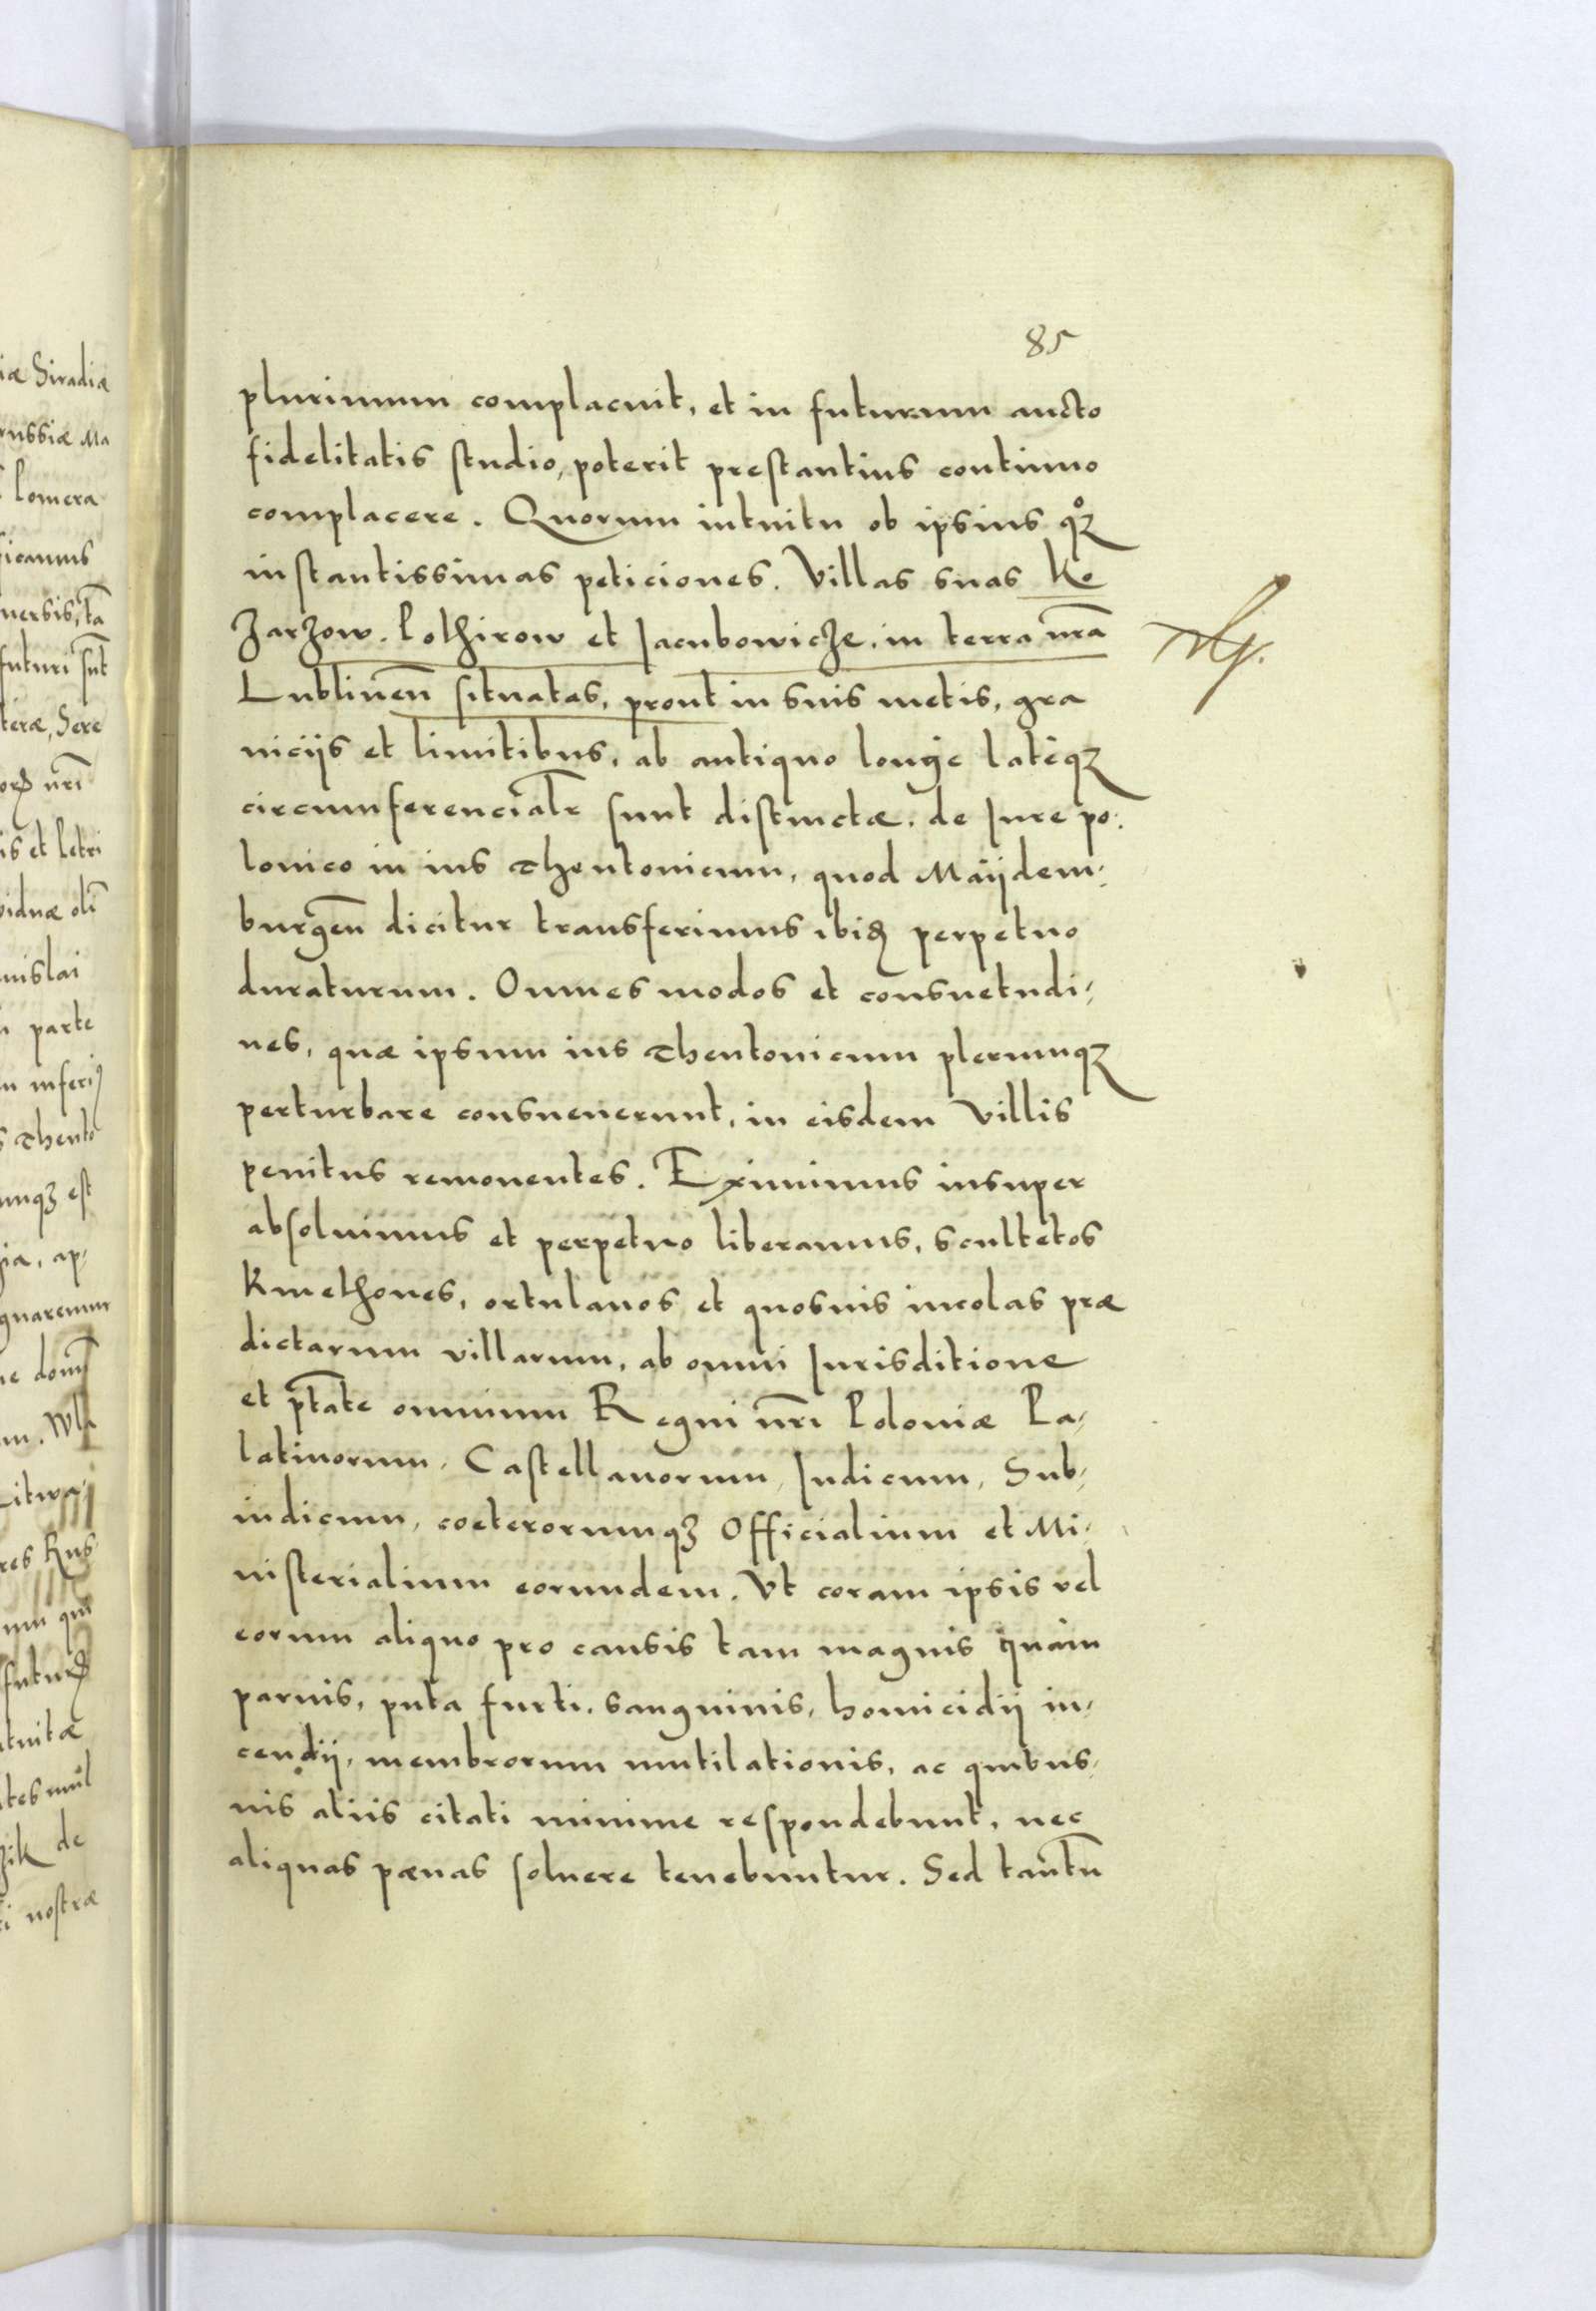 85
plurimum complacuit, et in futurum aucto
fidelitatis studio, poterit prestantius continuo
complacere. Quorum intuitu ob ipsius qͦꝫ
instantissimas peticiones. Villas suas Ko
Zarzow. Pothirow et Jacubowicze. in terra nr̄a
Lublinen̄ situatas, prout in suis metis, gra
niciis et limitibus, ab antiquo longe lateqꝫ
circumferencialr̄ sunt distinctæ. de Jure po:
lonico in ius Theutonicum, quod Maydem-
burgen̄ dicitur transferimus ibiđ perpetuo
duraturum. Omnes modos et consuetudi-
nes, quæ ipsum ius Theutonicum plerumqꝫ
perturbare consueuerunt, in eisdem Villis
penitus remouentes. Eximimus insuper
absoluimus et perpetuo liberamus, scultetos
Kmethones, ortulanos et quosuis incolas præ
dictarum villarum, ab omni Jurisditione
et pt̄ate omnium Regni nr̄i Poloniæ Pa-
latinorum, Castellanorum, Judicum, Sub-
iudicum, coeterorumqꝫ Officialium et Mi-
nisterialium eorundem. Vt coram ipsis vel
eorum aliquo pro causis tam magnis quàm
paruis, puta furti, sanguinis, homicidij in-
cendij, membrorum mutilationis, ac quibus-
uis aliis citati minime respondebunt, nec
aliquas pœnas soluere tenebuntur. Sed tantū
iæ Siradiæ
russiæ Ma
Pomera
uersis, tā
futuri sūt
teræ, Sere
nr̄i
is et Petri
viduæ oli
nislai
parte
Theuto
umqꝫ est
gia, ap-
Wla
Litwa
res Rus-
de
nostræ